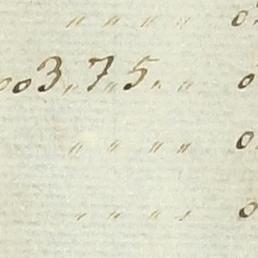 " " " " 0
003,7,5," " 0
" " " " 0
" " " " 0